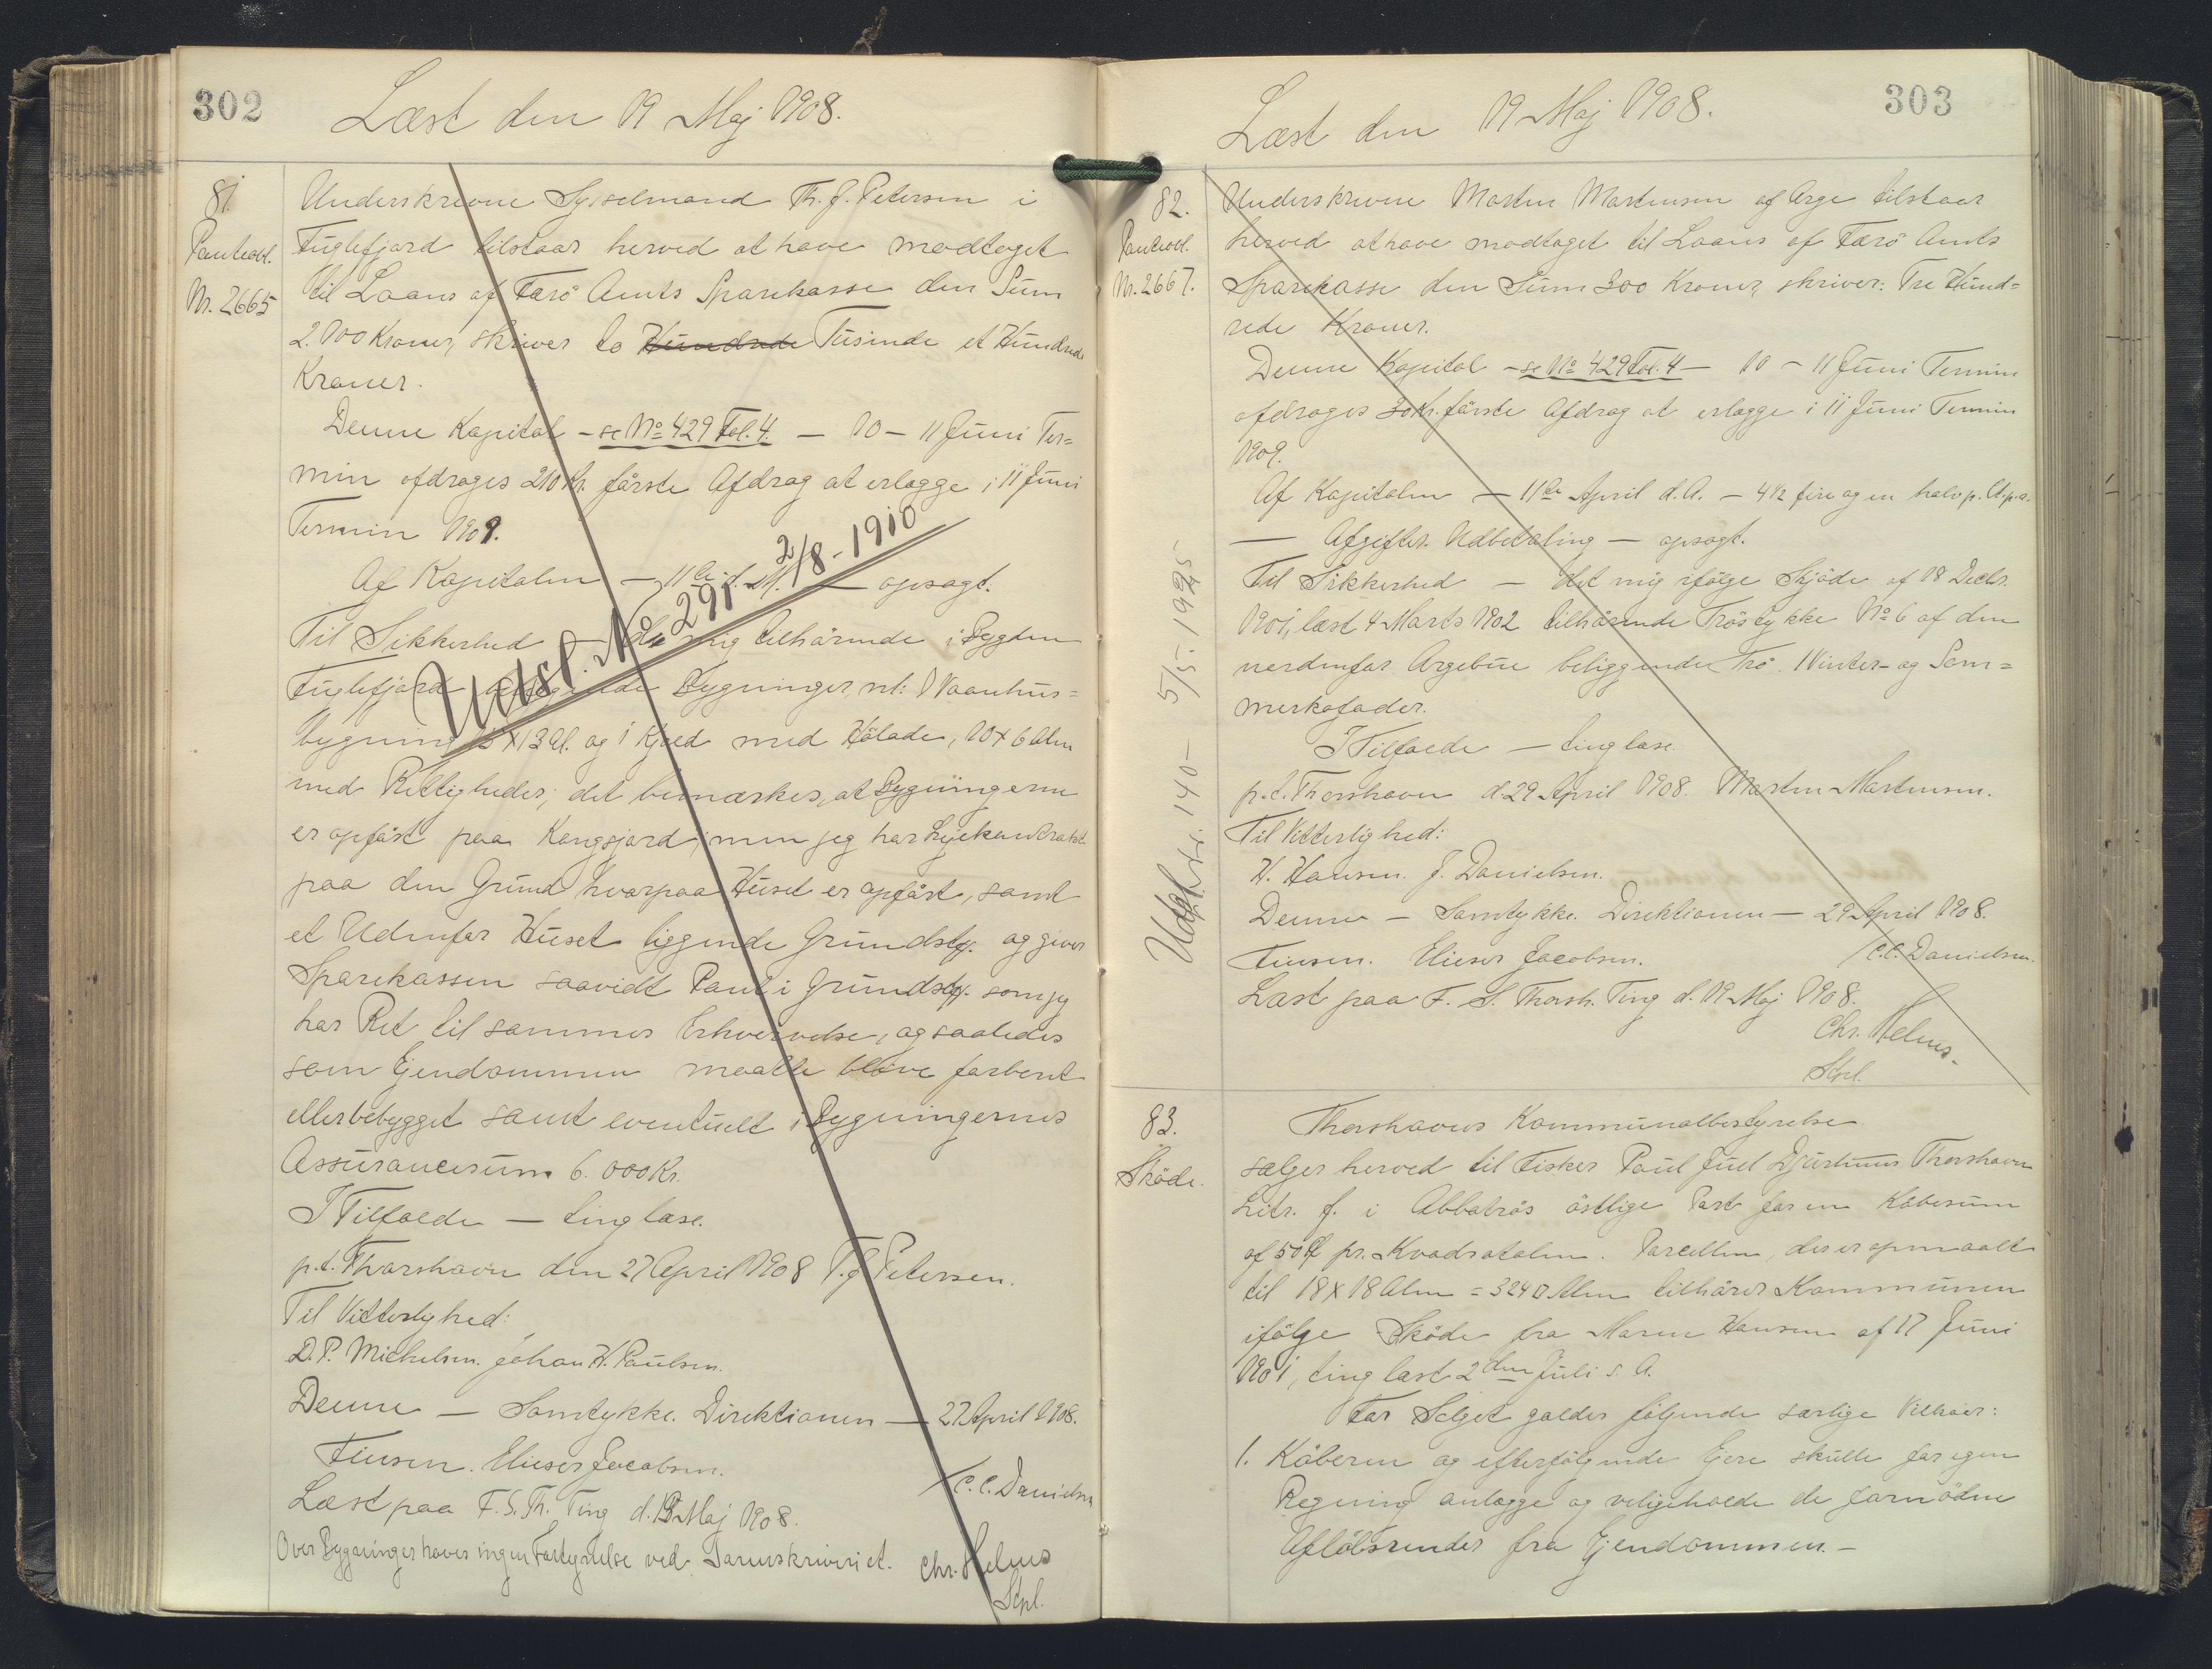 302
Læst den 19 Maj 1908.
81.
Panteobl.
Nr. 2665
Underskrevne Sysselmand Th. J. Petersen i
Fuglefjord tilstaar herved at have modtaget
til Laans af Færö Amts Sparekasse den Sum
2.100 Kroner, skriver to Hundrede Tusinde et Hundrede
Kroner.
Denne Kapital - se No 429 Fol. 4. - 10 - 11 Juni Ter=
min afdrages 210 Kr. förste Afdrag at erlægge i 11 Juni
Termin 1909.
Af Kapitalen - 11te d. M. - opsagt.
Til Sikkerhed - de mig tilhörende i Bygden
Fuglefjord beliggende Bygninger, nl: 1 Vaanhus=
bygning x 13 Al. og 1 Kjæld med Hölade, 10 x 6 Alen
med Rettigheder; det bemærkes, at Bygningerne
er opfört paa Kongsjord, men jeg har Lejekontrakt
paa den Grund hvorpaa Huset er opfört, samt
et Udenfor Huset liggende Grundsty. og giver
Sparekassen saavidt Pant i Grundsty. som jeg
har Ret til sammes Erhvervelse, og saaledes
som Ejendommen maatte blive forbedret
eller bebygget samt eventuelt i Bygningernes
Assurancesum 6.000 Kr.
I Tilfælde - tinglæse.
p.t. Thorshavn den 27 April 1908 T. J. Petersen.
Til Vitterlighed:
D. P. Michelsen. Johan H. Paulsen.
Denne - Samtykke. Direktionen - 27 April 1908.
Finsen. Elieser Jacobsen.
/C. C. Danielsen
Læst paa F. S. Th. Ting d. 19 Maj 1908.
Over Bygninger haves ingen Forsynelse ved Sorenskriveriet.
Chr. Helms
Stpl.
Udsl. No 291 2/8 - 1910
Læst den 19 Maj 1908.
303
82.
Panteobl.
Nr. 2667.
Underskrevne Morten Mortensen af Arge tilstaar
herved at have modtaget til Laans af Færö Amts
Sparekasse den Sum 300 Kroner, skriver: Tre Hund=
rede Kroner.
Denne Kapital - se No 429 Fol. 4 - 10 - 11 Juni Termin
afdrages 30 Kr. förste Afdrag at erlægge i 11 Juni Termin
1909.
Af Kapitalen - 11te April d. A. - 4½ fire og en halv p. Ct. p. a.
- Afgifter. Udbetaling - opsagt.
Til Sikkerhed - det mig ifölge Skjöde af 18 Decbr.
1901, læst 4 Marts 1902 tilhörende Tröstykke No 6 af den
nordenfor Argebön beliggende Trö. 1 Vinter- og Som=
merkofoder.
I Tilfælde - tinglæse.
p.t. Thorshavn d. 29 April 1908. Morten Mortensen.
Til Vitterlighed:
H. Hansen. J. Danielsen.
Denne - Samtykke. Direktionen - 29 April 1908.
Finsen. Elieser Jacobsen.
/C. C. Danielsen.
Læst paa F. S. Thorsh. Ting d. 19 Maj 1908.
Chr. Helms.
Stpl.
Udsl. Nr. 140 - 5/5. 1925
83.
Sköde.
Thorshavns Kommunalbestyrelse
sælger herved til Fisker Poul Juel Djurhuus Thorshavn
Litr. f. i Abbatrös östlige Part for en Köbesum
af 50 Ø pr. Kvadratalen. Parcellen, der er opmaalt
til 18 x 18 Alen = 324 □ Alen tilhörer Kommunen
ifölge Sköde fra Maren Hansen af 17 Juni
1901, tinglæst 2den Juli s. A.
For Salget gælder fölgende særlige Vilkaar:
1. Köberen og efterfölgende Ejere skulle for egen
Regning anlægge og vedligeholde de fornödne
Aflöbsrender fra Ejendommen. -